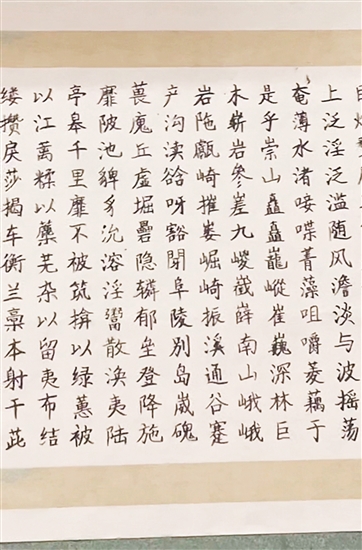 上泛淫泛滥随风澹淡与波摇荡
奄薄水渚唼喋菁藻咀嚼菱藕于
是乎崇山矗矗巃嵷崔巍深林巨
木崭岩参差九嵕嶻薛南山峨峨
岩陁甗崎摧娄崛崎振溪通谷蹇
产沟渎谽呀豁閜阜陵别岛崴磈
丘虚堀礨隐辚郁垒登降施
靡陂池貏豸沇溶淫鬻散涣夷陆
亭皋千里靡不被筑揜以绿蕙被
以江蓠糅以蘪芜杂以留夷布结
缕攒戾莎揭车衡兰稾本射干茈